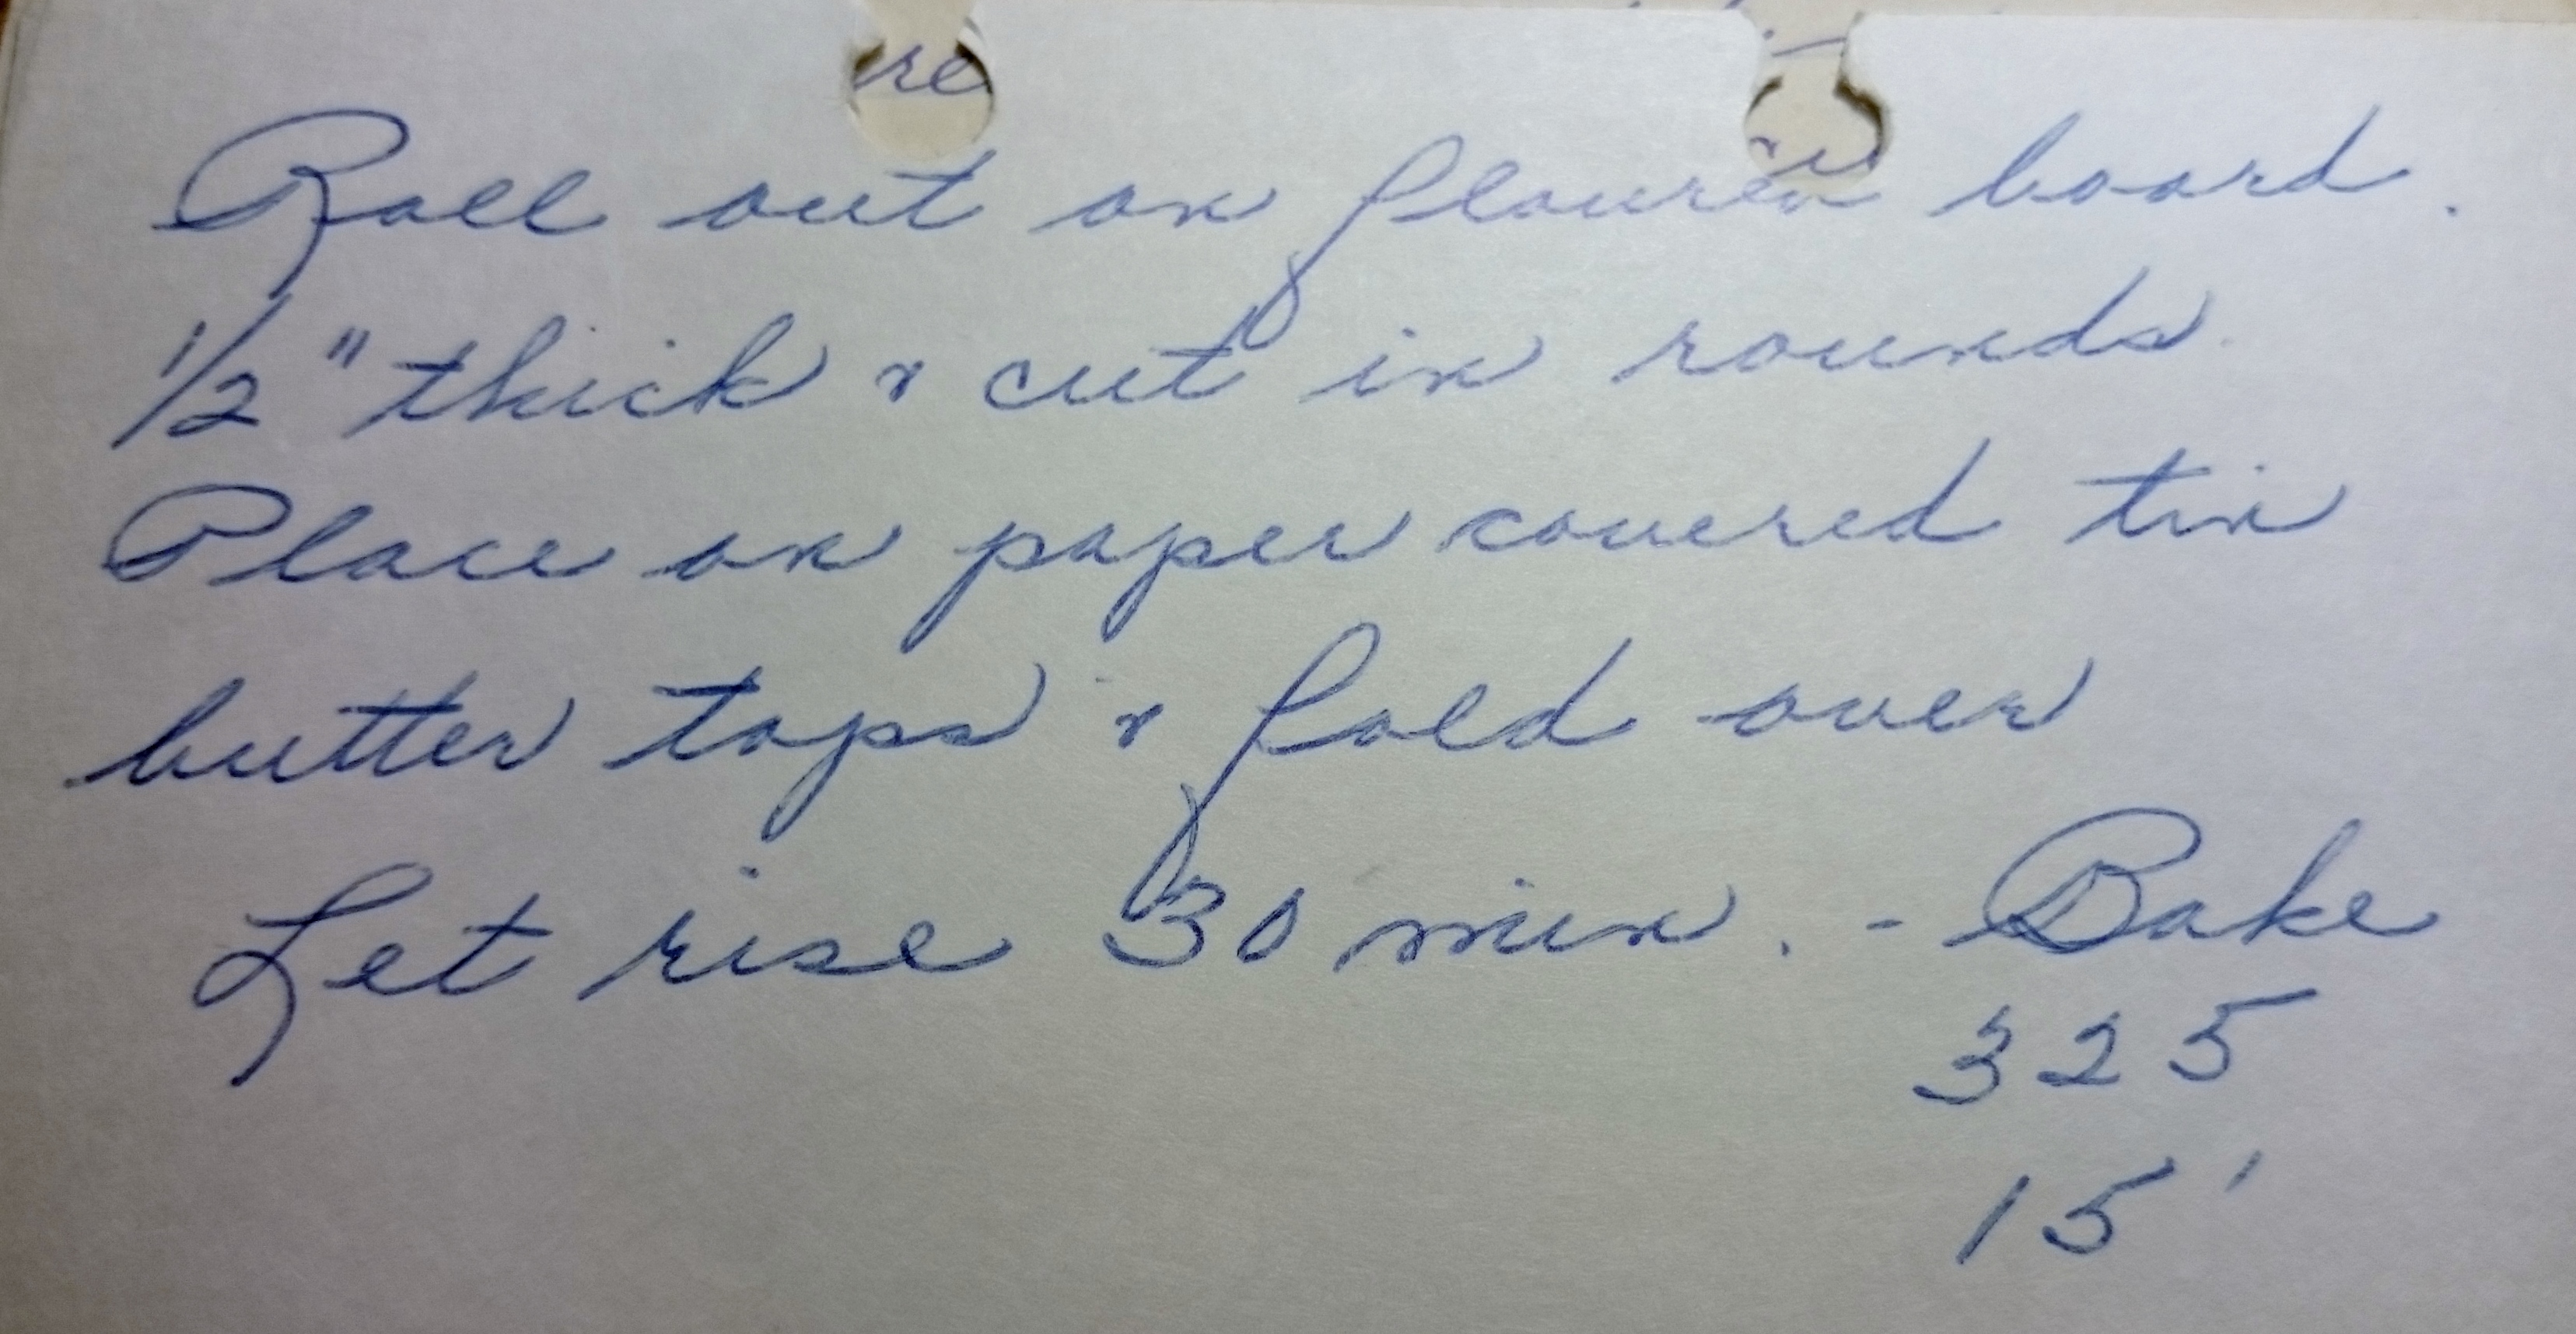 re
Roll out on floured board.
1/2" thick & cut in rounds.
Place on paper covered tin
butter tops & fold over
Let rise 30 min. - Bake
325
15'